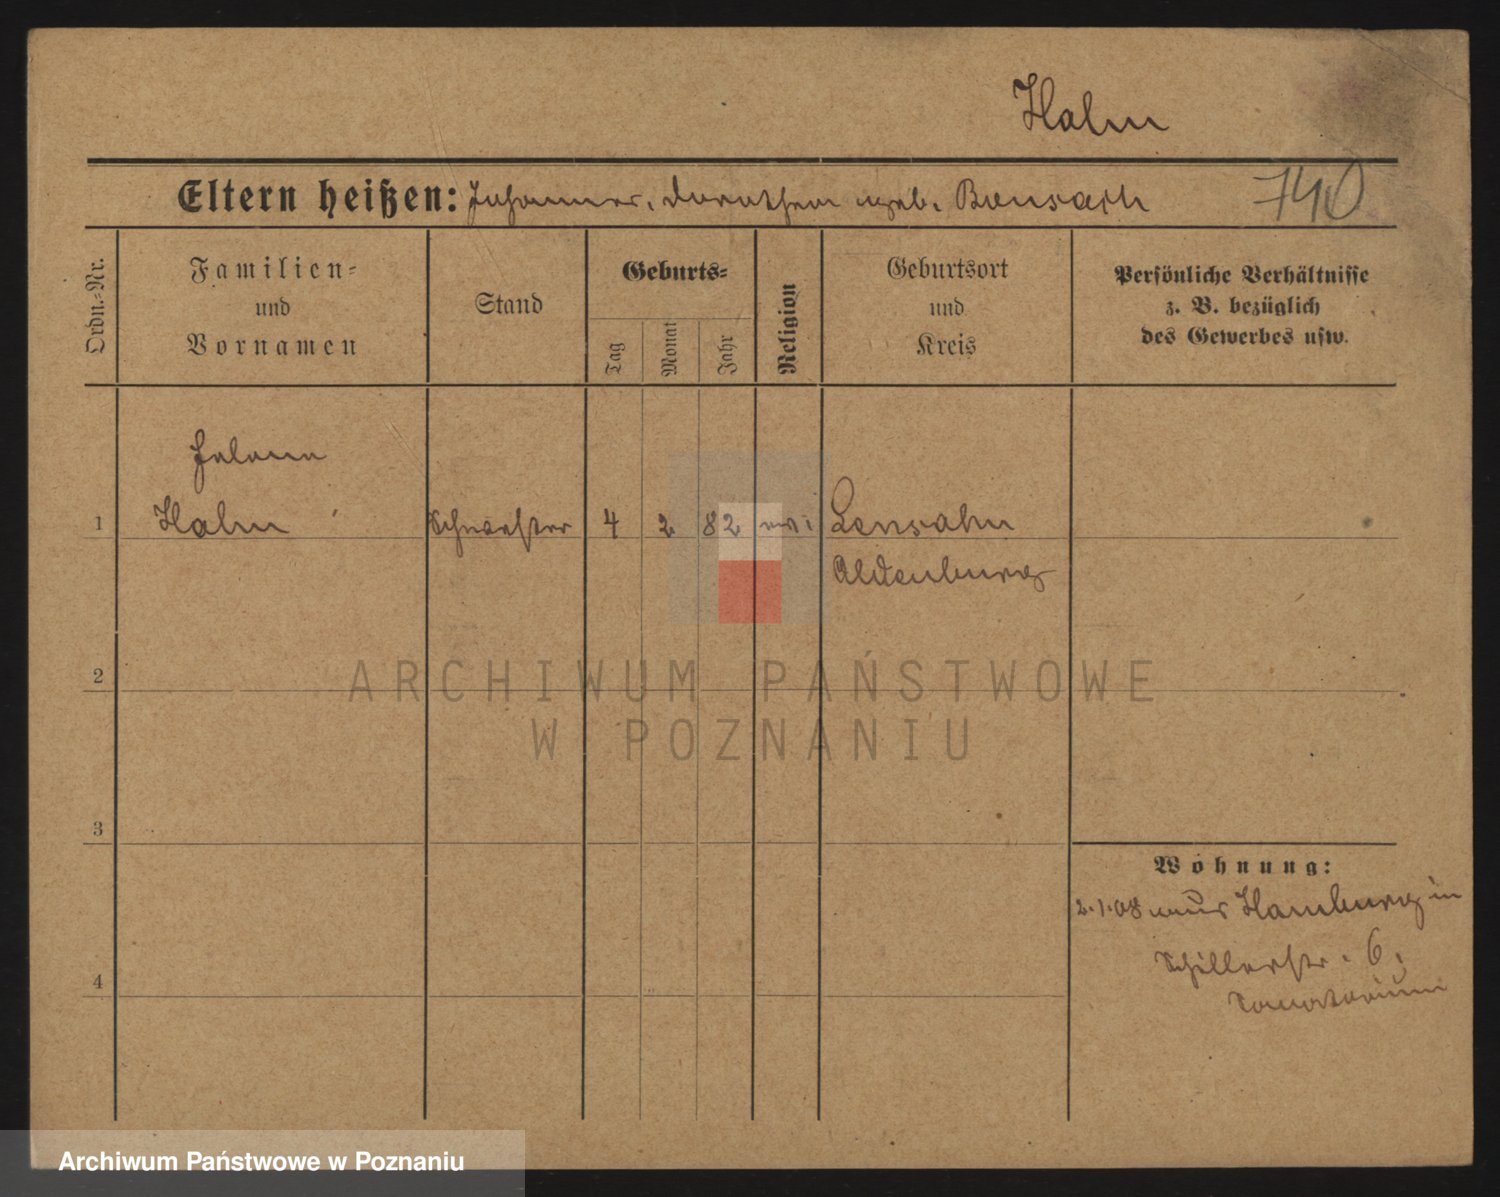 Halm
Eltern heißen: Johannes, Dorothea geb. Bensach
740
Ordn.-Nr.
Familien-
und
Vornamen
Stand
Geburts-
Tag
Monat
Jahr
Religion
Geburtsort
und
Kreis
Persönliche Verhältnisse
z. B. bezüglich
des Gewerbes usw.
Helene
1 Halm Schwester 4 2 82 ev. Lensahn
Oldenburg
2
3
4
Wohnung:
2.1.08 aus Hamburg in
Schillerstr. 6.
Sanatorium
ARCHIWUM PAŃSTWOWE
W POZNANIU
Archiwum Państwowe w Poznaniu